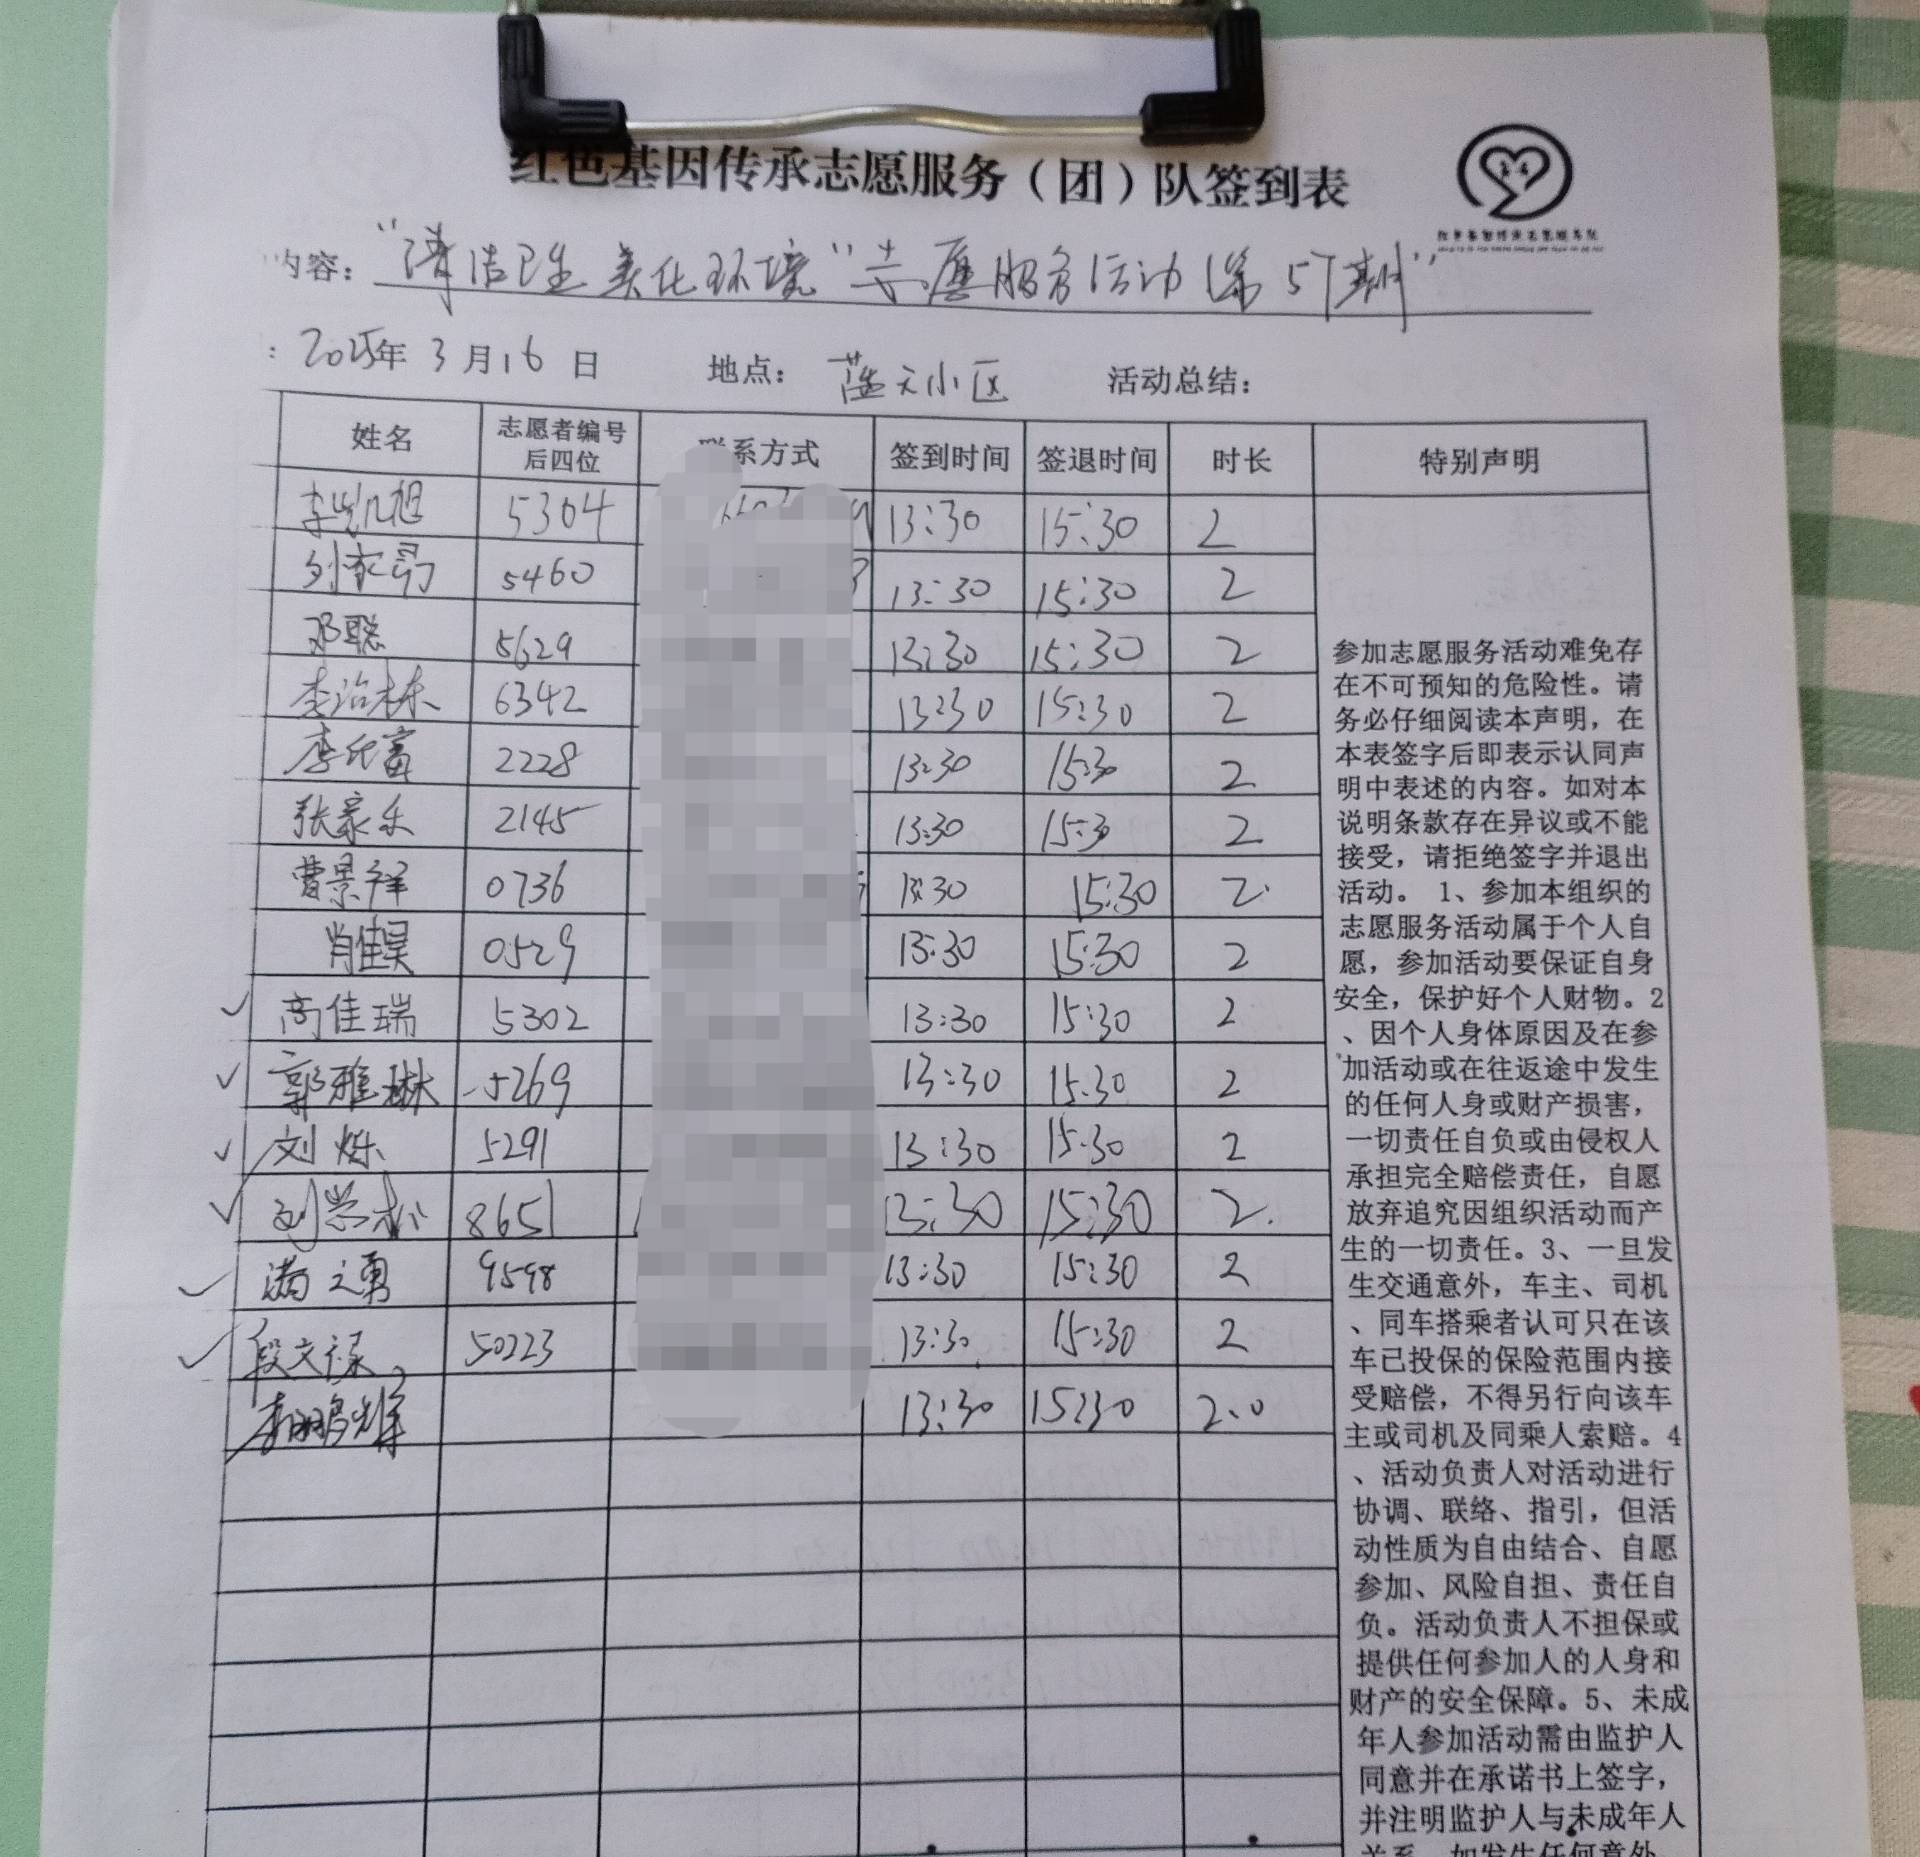 红色基因传承志愿服务（团）队签到表
内容："清洁卫生 美化环境"志愿服务活动（第57期"
：2025年 3月16日 地点：蓝天小区 活动总结：
姓名 志愿者编号后四位 联系方式 签到时间 签退时间 时长 特别声明
李凯旭 5304 13:30 15:30 2
5460 13:30 15:30 2
邓聪 5629 13:30 15:30 2
李治栋 6342 13:30 15:30 2
李氏富 2228 13:30 15:30 2
张豪乐 2145 13:30 15:30 2
曹景祥 0736 13:30 15:30 2
肖佳昊 0529 13:30 15:30 2
✓ 高佳瑞 5302 13:30 15:30 2
✓ 郭雅琳 5269 13:30 15:30 2
✓ 刘烁 5291 13:30 15:30 2
✓ 刘 8651 13:30 15:30 2
✓ 满之勇 9598 13:30 15:30 2
✓ 段文 50223 13:30 15:30 2
李鹏辉 13:30 15:30 2.0
参加志愿服务活动难免存
在不可预知的危险性。请
务必仔细阅读本声明，在
本表签字后即表示认同声
明中表述的内容。如对本
说明条款存在异议或不能
接受，请拒绝签字并退出
活动。 1、参加本组织的
志愿服务活动属于个人自
愿，参加活动要保证自身
安全，保护好个人财物。2
、因个人身体原因及在参
加活动或在往返途中发生
的任何人身或财产损害，
一切责任自负或由侵权人
承担完全赔偿责任，自愿
放弃追究因组织活动而产
生的一切责任。3、一旦发
生交通意外，车主、司机
、同车搭乘者认可只在该
车已投保的保险范围内接
受赔偿，不得另行向该车
主或司机及同乘人索赔。4
、活动负责人对活动进行
协调、联络、指引，但活
动性质为自由结合、自愿
参加、风险自担、责任自
负。活动负责人不担保或
提供任何参加人的人身和
财产的安全保障。5、未成
年人参加活动需由监护人
同意并在承诺书上签字，
并注明监护人与未成年人
关系，如发生任何意外